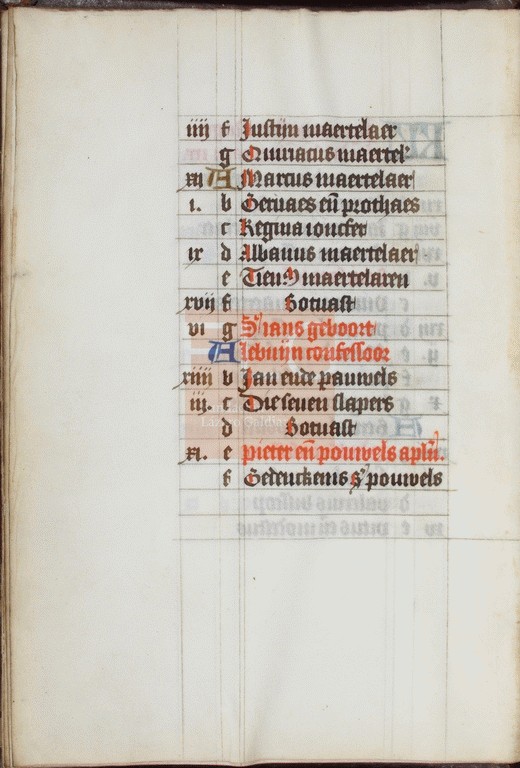 iiij f Justijn maertelaer
g Quiriacus maertel'
xij A Marcus maertelaer
i. b Geruaes eñ prothaes
c Regina ioncfer
ix d Albanus maertelaer
e Tien M maertelaren
xvij f Botuast
vi g S Jans geboort
A Lebuijn confessoor
xiiij b Jan ende pauwels
iij. c Die seuen slapers
d Botuast
xi. e pieter eñ pouwels apl'n.
f Gedenckenis s' pouwels